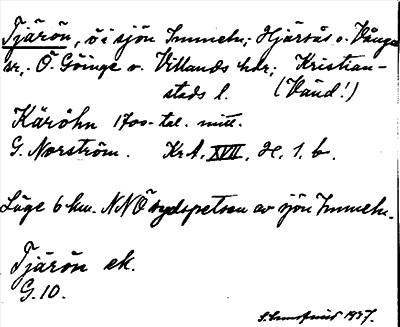 Tjärön, ö i sjön Immeln; Hjärsås o. Vånga
sr; Ö. Göinge o. Villands hdr; Kristian-
stads l. (Vänd!)
Käröhn 1700-tal. mitt.
G. Norström. KrA. XVII. H. 1. b.
Läge 6 km. NNÖ sydspetsen av sjön Immeln.
Tjärön ek.
G.10.
1937.